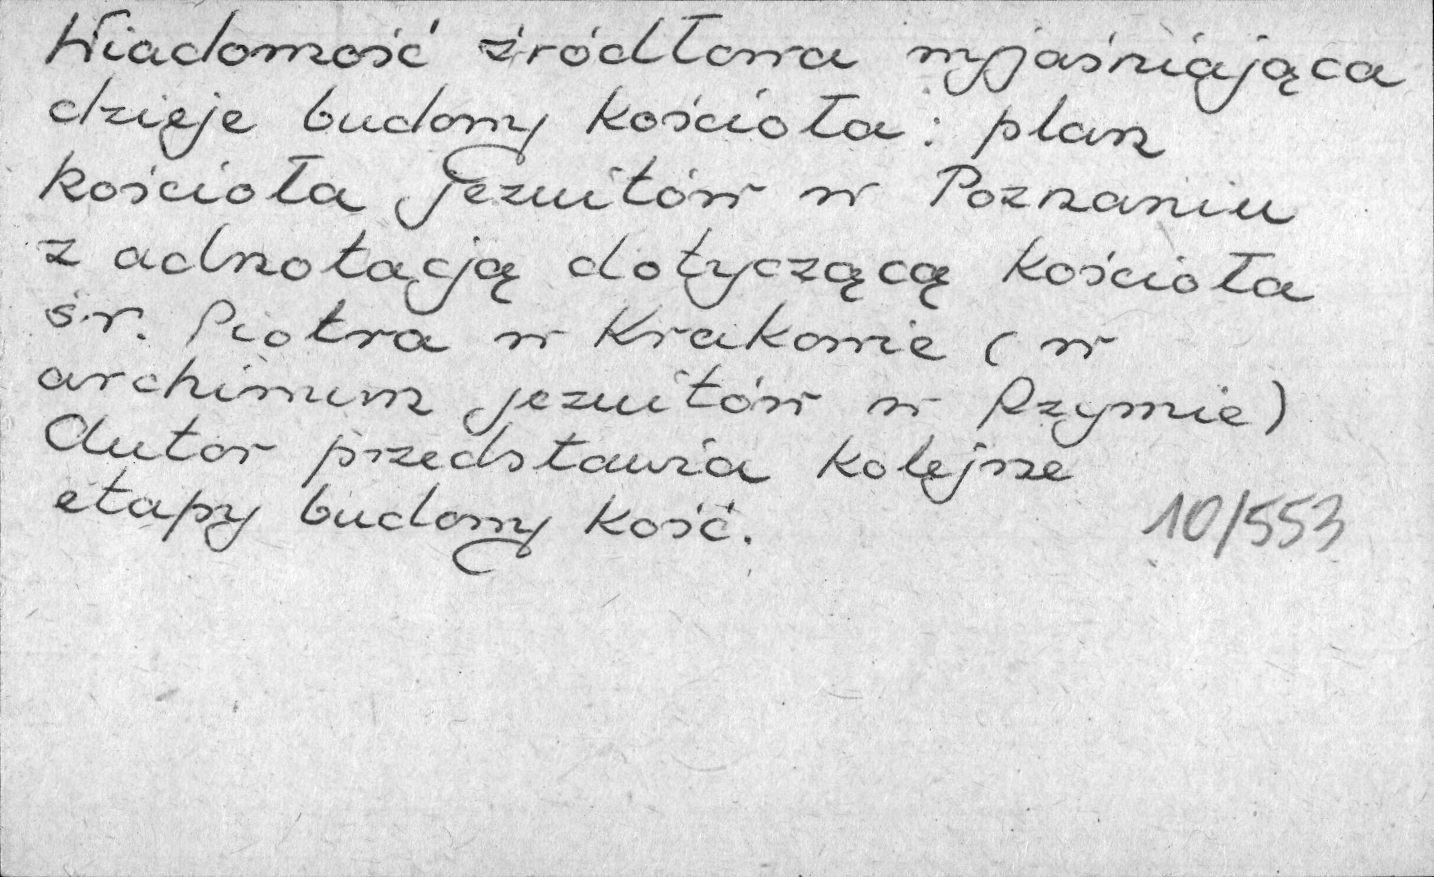 Wiadomość źródłowa wyjaśniająca
dzieje budowy kościoła: plan
kościoła Jezuitów w Poznaniu
z adnotacją dotyczącą kościoła
św. Piotra w Krakowie (w
archiwum jezuitów w Rzymie)
Autor przedstawia kolejne
etapy budowy kość.
10/553